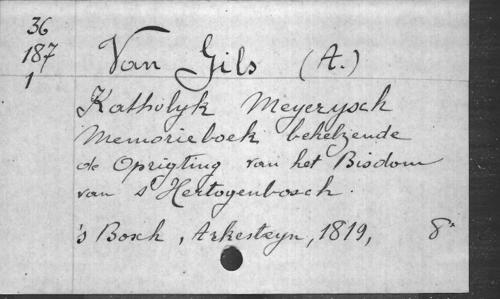 36
187
1
Van Gils (A.)
Katholyk Meyerysch
Memorieboek behelzende
de Oprigting van het Bisdom
van s'Hertogenbosch.
's Bosch, Arkesteyn, 1819, 8°